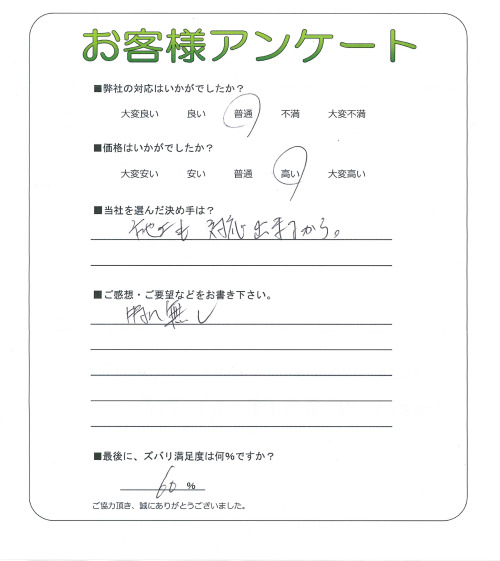 お客様アンケート
■弊社の対応はいかがでしたか?
大変良い 良い 普通 不満 大変不満
■価格はいかがでしたか?
大変安い 安い 普通 高い 大変高い
■当社を選んだ決め手は?
対応出来るから。
■ご感想・ご要望などをお書き下さい。
特に無し
■最後に、ズバリ満足度は何%ですか?
60 %
ご協力頂き、誠にありがとうございました。